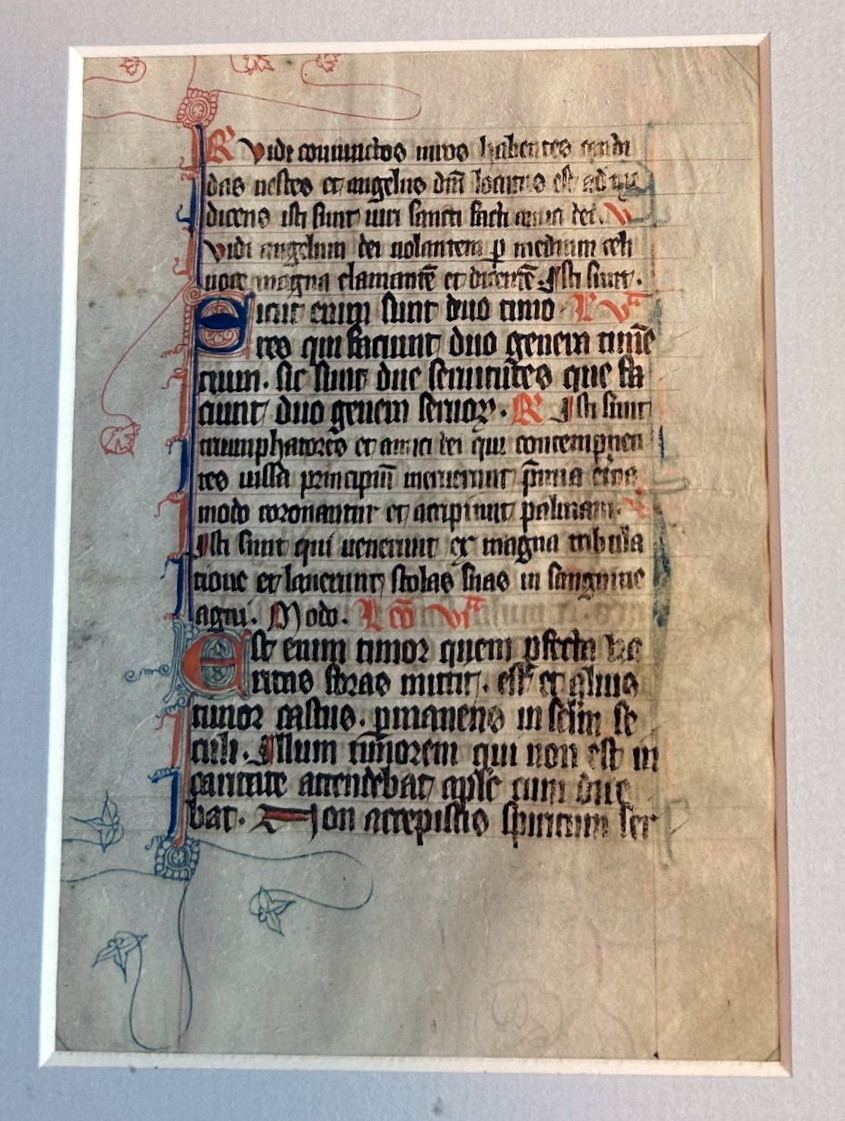 R Vidi coniunctos uiros habentes splendi
das uestes et angelus dnī locutus est ad me
dicens isti sunt uiri sancti facti amici dei. V
Vidi angelum dei uolantem p medium celi
uoce magna clamantē et dicentē. Isti sunt.
Sicut enim sunt duo timo L va
res qui faciunt duo genera timē
tium. sic sunt due seruitutes que fa
ciunt duo genera seruoꝝ. R Isti sunt
triumphatores et amici dei qui contempnen
tes iussa principū meruerunt p̄mia et̄na
modo coronantur et accipiunt palmam. V
Isti sunt qui uenerunt ex magna tribula
tione et lauerunt stolas suas in sanguine
agni. Modo. L vi
Est enim timor quem pfecta ca
ritas foras mittit. est et alius
timor castus. pmanens in sclm se
culi. Illum timorem qui non est in
caritate attendebat apls cum dice
bat. Non accepistis spiritum ser